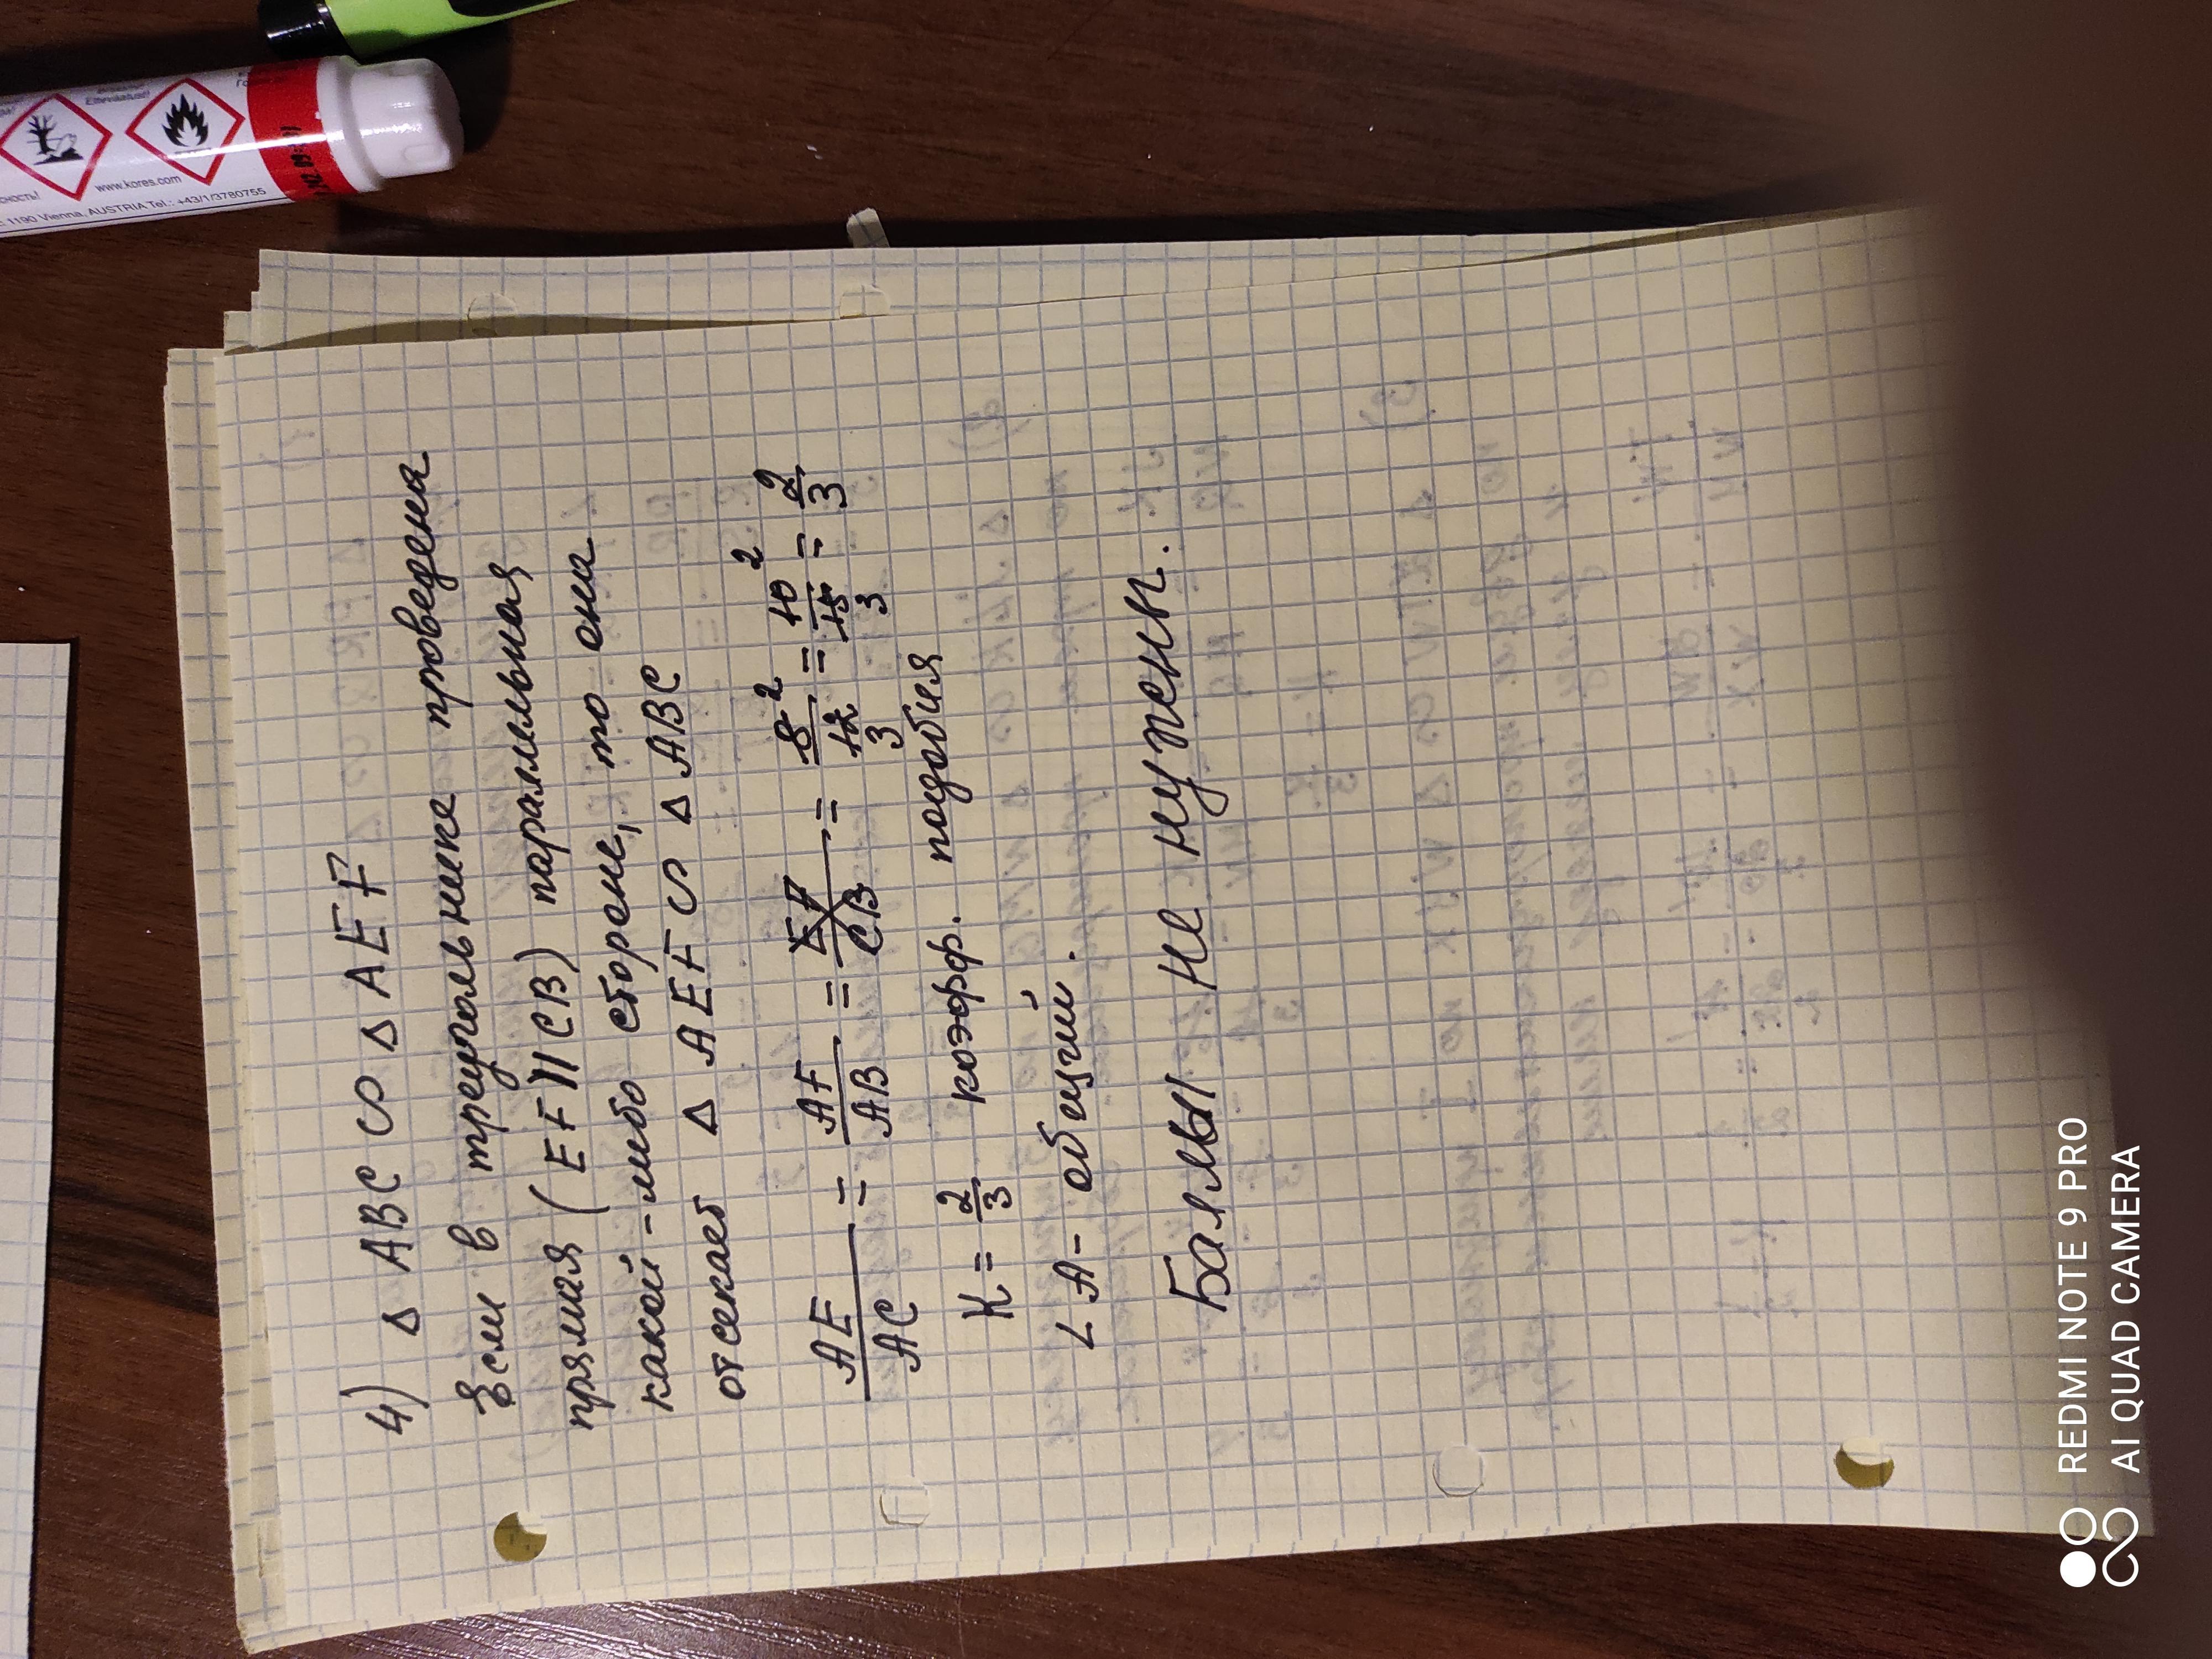 4) Δ ABC ∽ Δ AEF
Если в треугольнике проведена
прямая (EF || CB) параллельная
какой-либо стороне, то она
отсекает Δ AEF ∽ Δ ABC
AE/AC = AF/AB = EF/CB = 8/12 2/3 = 10/15 2/3 = 2/3
K = 2/3 коэфф. подобия
∠ A - общий.
Баллы не нужны.
www.kores.com
1190 Vienna, AUSTRIA Tel.: +43/1/3780755
REDMI NOTE 9 PRO
AI QUAD CAMERA